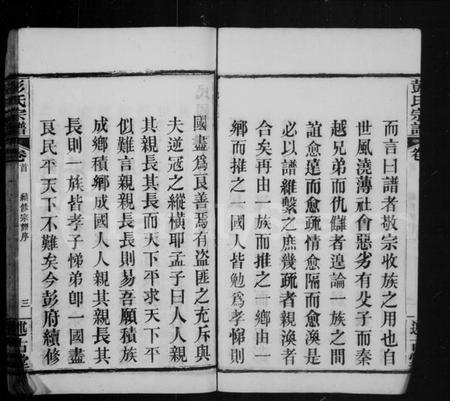 而言曰譜者敬宗收族之用也自
世風澆薄社會惡劣有父子而秦
越兄弟而仇讎者遑論一族之間
誼愈遠而愈疏情愈隔而愈渙是
必以譜維繫之庶幾疏者親渙者
合矣再由一族而推之一鄉由一
鄉而推之一國人皆勉為孝悌則
國盡為良善焉有盜匪之充斥與
夫逆寇之縱橫耶孟子曰人人親
其親長其長而天下平求天下平
似難言親親長長則易吾願積族
成鄉積鄉成國人人親其親長其
長則一族皆孝子悌弟即一國盡
良民平天下不難矣今彭府續修
彭氏宗譜
卷首
續修宗譜序
三
述古堂
彭氏宗譜